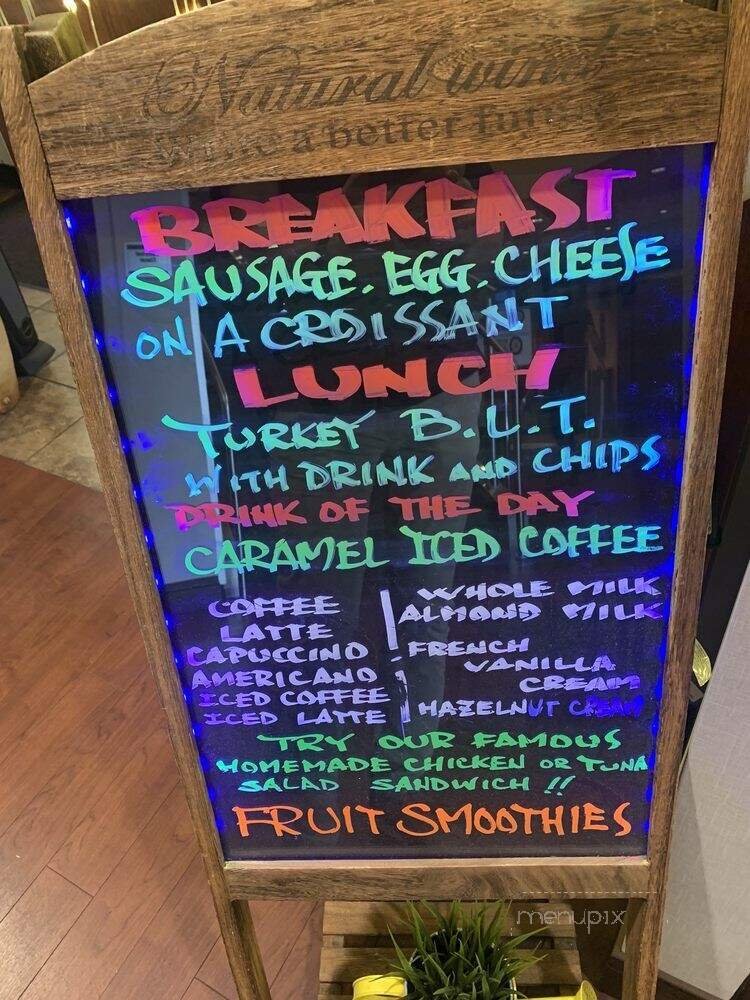 Natural wind
a better
BREAKFAST
SAUSAGE. EGG. CHEESE
ON A CROISSANT
LUNCH
TURKEY B.L.T.
WITH DRINK AND CHIPS
DRINK OF THE DAY
CARAMEL ICED COFFEE
COFFEE
LATTE
CAPUCCINO
AMERICANO
ICED COFFEE
ICED LATTE
WHOLE MILK
ALMOND MILK
FRENCH
VANILLA
CREAM
HAZELNUT CREAM
TRY OUR FAMOUS
HOMEMADE CHICKEN OR TUNA
SALAD SANDWICH !!
FRUIT SMOOTHIES
menupix